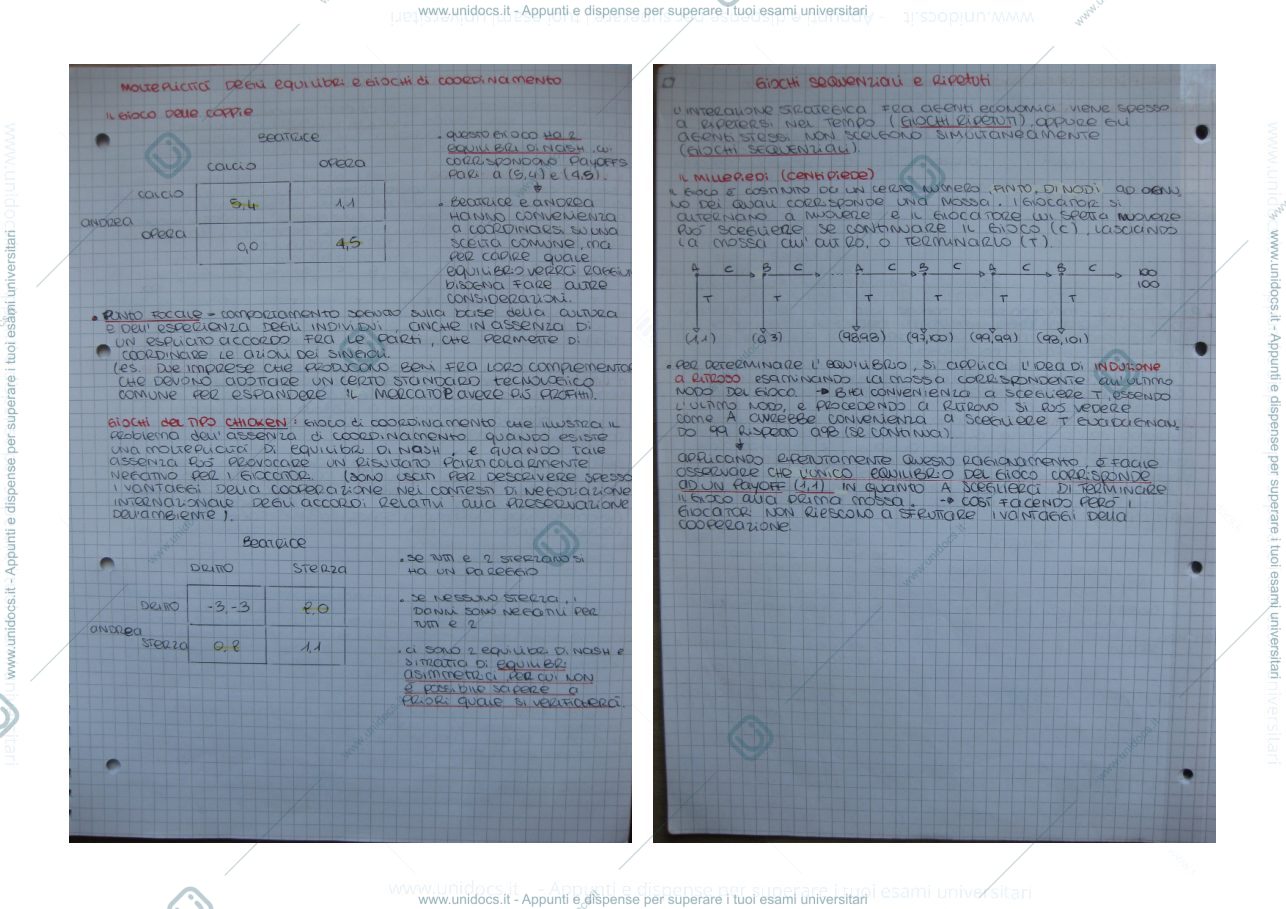 www.unidocs.it - Appunti e dispense per superare i tuoi esami universitari
MOLTEPLICITÀ DEGLI EQUILIBRI E GIOCHI DI COORDINAMENTO
IL GIOCO DELLE COPPIE
BEATRICE
CALCIO OPERA
CALCIO 5,4 1,1
ANDREA
OPERA 0,0 4,5
• QUESTO GIOCO HA 2
EQUILIBRI DI NASH, CUI
CORRISPONDONO PAYOFFS
PARI A (5,4) E (4,5).
• BEATRICE E ANDREA
HANNO CONVENIENZA
A COORDINARSI SU UNA
SCELTA COMUNE, MA
PER CAPIRE QUALE
EQUILIBRIO VERRÀ RAGGIUN
BISOGNA FARE ALTRE
CONSIDERAZIONI.
• PUNTO FOCALE = COMPORTAMENTO SCELTO SULLA BASE DELLA CULTURA
E DELL'ESPERIENZA DEGLI INDIVIDUI, ANCHE IN ASSENZA DI
UN ESPLICITO ACCORDO FRA LE PARTI, CHE PERMETTE DI
COORDINARE LE AZIONI DEI SINGOLI.
(ES. DUE IMPRESE CHE PRODUCONO BENI FRA LORO COMPLEMENTA
CHE DEVONO ADOTTARE UN CERTO STANDARD TECNOLOGICO
COMUNE PER ESPANDERE IL MERCATO E AVERE PIÙ PROFITTI).
GIOCHI DEL TIPO CHICKEN: GIOCO DI COORDINAMENTO CHE ILLUSTRA IL
PROBLEMA DELL'ASSENZA DI COORDINAMENTO QUANDO ESISTE
UNA MOLTEPLICITÀ DI EQUILIBRI DI NASH, E QUANDO TALE
ASSENZA PUÒ PROVOCARE UN RISULTATO PARTICOLARMENTE
NEGATIVO PER I GIOCATORI. (SONO USATI PER DESCRIVERE SPESSO
I VANTAGGI DELLA COOPERAZIONE NEI CONTESTI DI NEGOZIAZIONE
INTERNAZIONALE DEGLI ACCORDI RELATIVI ALLA PRESERVAZIONE
DELL'AMBIENTE).
BEATRICE
DRITTO STERZA
DRITTO -3,-3 2,0
ANDREA
STERZA 0,2 1,1
• SE TUTTI E 2 STERZANO SI
HA UN PAREGGIO
• SE NESSUNO STERZA, I
DANNI SONO NEGATIVI PER
TUTTI E 2
• CI SONO 2 EQUILIBRI DI NASH E
SI TRATTA DI EQUILIBRI
ASIMMETRICI, PER CUI NON
È POSSIBILE SAPERE A
PRIORI QUALE SI VERIFICHERÀ.
GIOCHI SEQUENZIALI E RIPETUTI
L'INTERAZIONE STRATEGICA FRA AGENTI ECONOMICI VIENE SPESSO
A RIPETERSI NEL TEMPO (GIOCHI RIPETUTI), OPPURE GLI
AGENTI STESSI NON SCELGONO SIMULTANEAMENTE
(GIOCHI SEQUENZIALI).
IL MILLEPIEDI (CENTIPIEDE)
IL GIOCO È COSTITUITO DA UN CERTO NUMERO, FINITO, DI NODI AD OGNU
NO DEI QUALI CORRISPONDE UNA MOSSA. I GIOCATORI SI
ALTERNANO A MUOVERE E IL GIOCATORE CUI SPETTA MUOVERE
PUÒ SCEGLIERE SE CONTINUARE IL GIOCO (C), LASCIANDO
LA MOSSA ALL'ALTRO, O TERMINARLO (T).
A C B C ... A C B C A C B C 100
100
T T T T T T
(1,1) (0,3) (98,98) (97,100) (99,99) (98,101)
• PER DETERMINARE L'EQUILIBRIO, SI APPLICA L'IDEA DI INDUZIONE
A RITROSO ESAMINANDO LA MOSSA CORRISPONDENTE ALL'ULTIMO
NODO DEL GIOCO. → B HA CONVENIENZA A SCEGLIERE T, ESSENDO
L'ULTIMO NODO, E PROCEDENDO A RITROVO SI PUÒ VEDERE
COME A AVREBBE CONVENIENZA A SCEGLIERE T GUADAGNAN
DO 99 RISPETTO A 98 (SE CONTINUA).
APPLICANDO RIPETUTAMENTE QUESTO RAGIONAMENTO È FACILE
OSSERVARE CHE L'UNICO EQUILIBRIO DEL GIOCO CORRISPONDE
AD UN PAYOFF (1,1) IN QUANTO A SCEGLIERÀ DI TERMINARE
IL GIOCO ALLA PRIMA MOSSA. → COSÌ FACENDO PERÒ I
GIOCATORI NON RIESCONO A SFRUTTARE I VANTAGGI DELLA
COOPERAZIONE.
www.unidocs.it - Appunti e dispense per superare i tuoi esami universitari